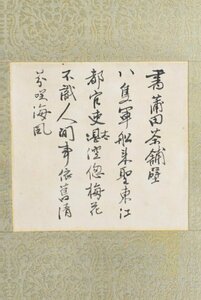 書蒲田茶舗壁
八隻軍船来東江
都官吏太倥偬梅花
不識人間事依舊清
芬咲海風